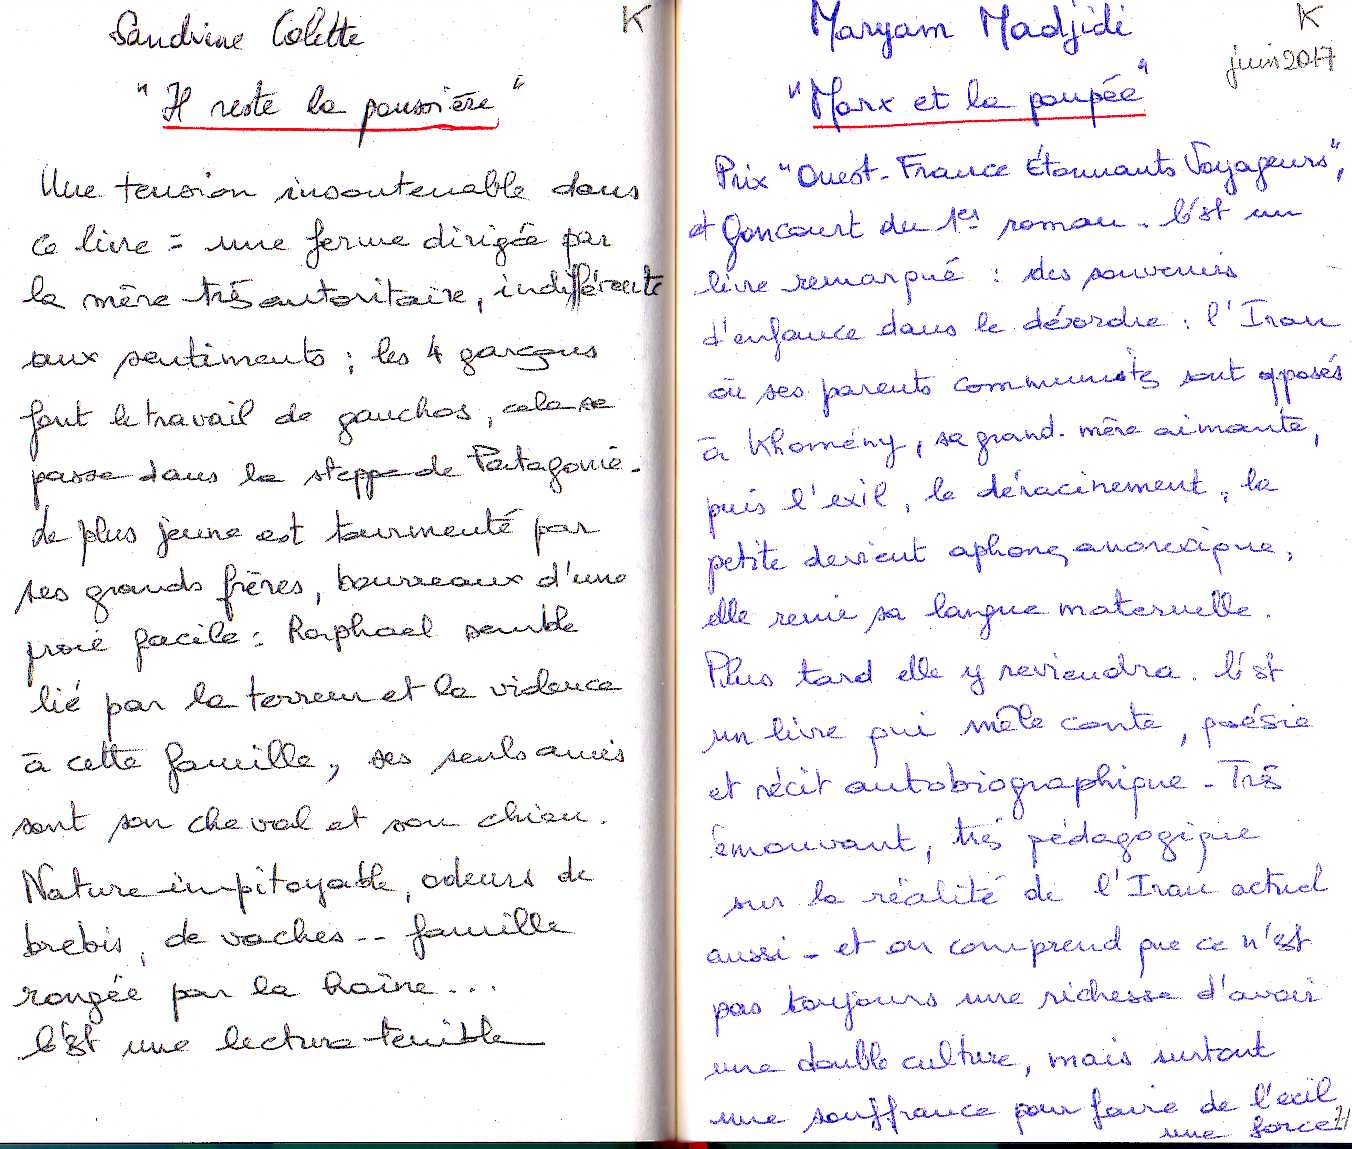 Sandrine Colette
K
"Il reste la poussière"
Une tension insoutenable dans
ce livre = une ferme dirigée par
la mère très autoritaire, indifférente
aux sentiments ; les 4 garçons
font le travail de gauchos, cela se
passe dans la steppe de Patagonie.
Le plus jeune est tourmenté par
ses grands frères, bourreaux d'une
proie facile : Raphael semble
lié par la terreur et la violence
à cette famille, ses seuls amis
sont son cheval et son chien.
Nature impitoyable, odeurs de
brebis, de vaches -- famille
rongée par la haine...
C'est une lecture terrible
Maryam Madjidi
K
juin 2017
"Marx et la poupée"
Prix "Ouest-France Étonnants Voyageurs",
et Goncourt du 1er roman. C'est un
livre remarqué : des souvenirs
d'enfance dans le désordre : l'Iran
où ses parents communistes sont opposés
à Khomény, sa grand-mère aimante,
puis l'exil, le déracinement, la
petite devient aphone, anorexique,
elle renie sa langue maternelle.
Plus tard elle y reviendra. C'est
un livre qui mêle conte, poésie
et récit autobiographique - Très
émouvant, très pédagogique
sur la réalité de l'Iran actuel
aussi - et on comprend que ce n'est
pas toujours une richesse d'avoir
une double culture, mais surtout
une souffrance pour faire de l'exil
une force